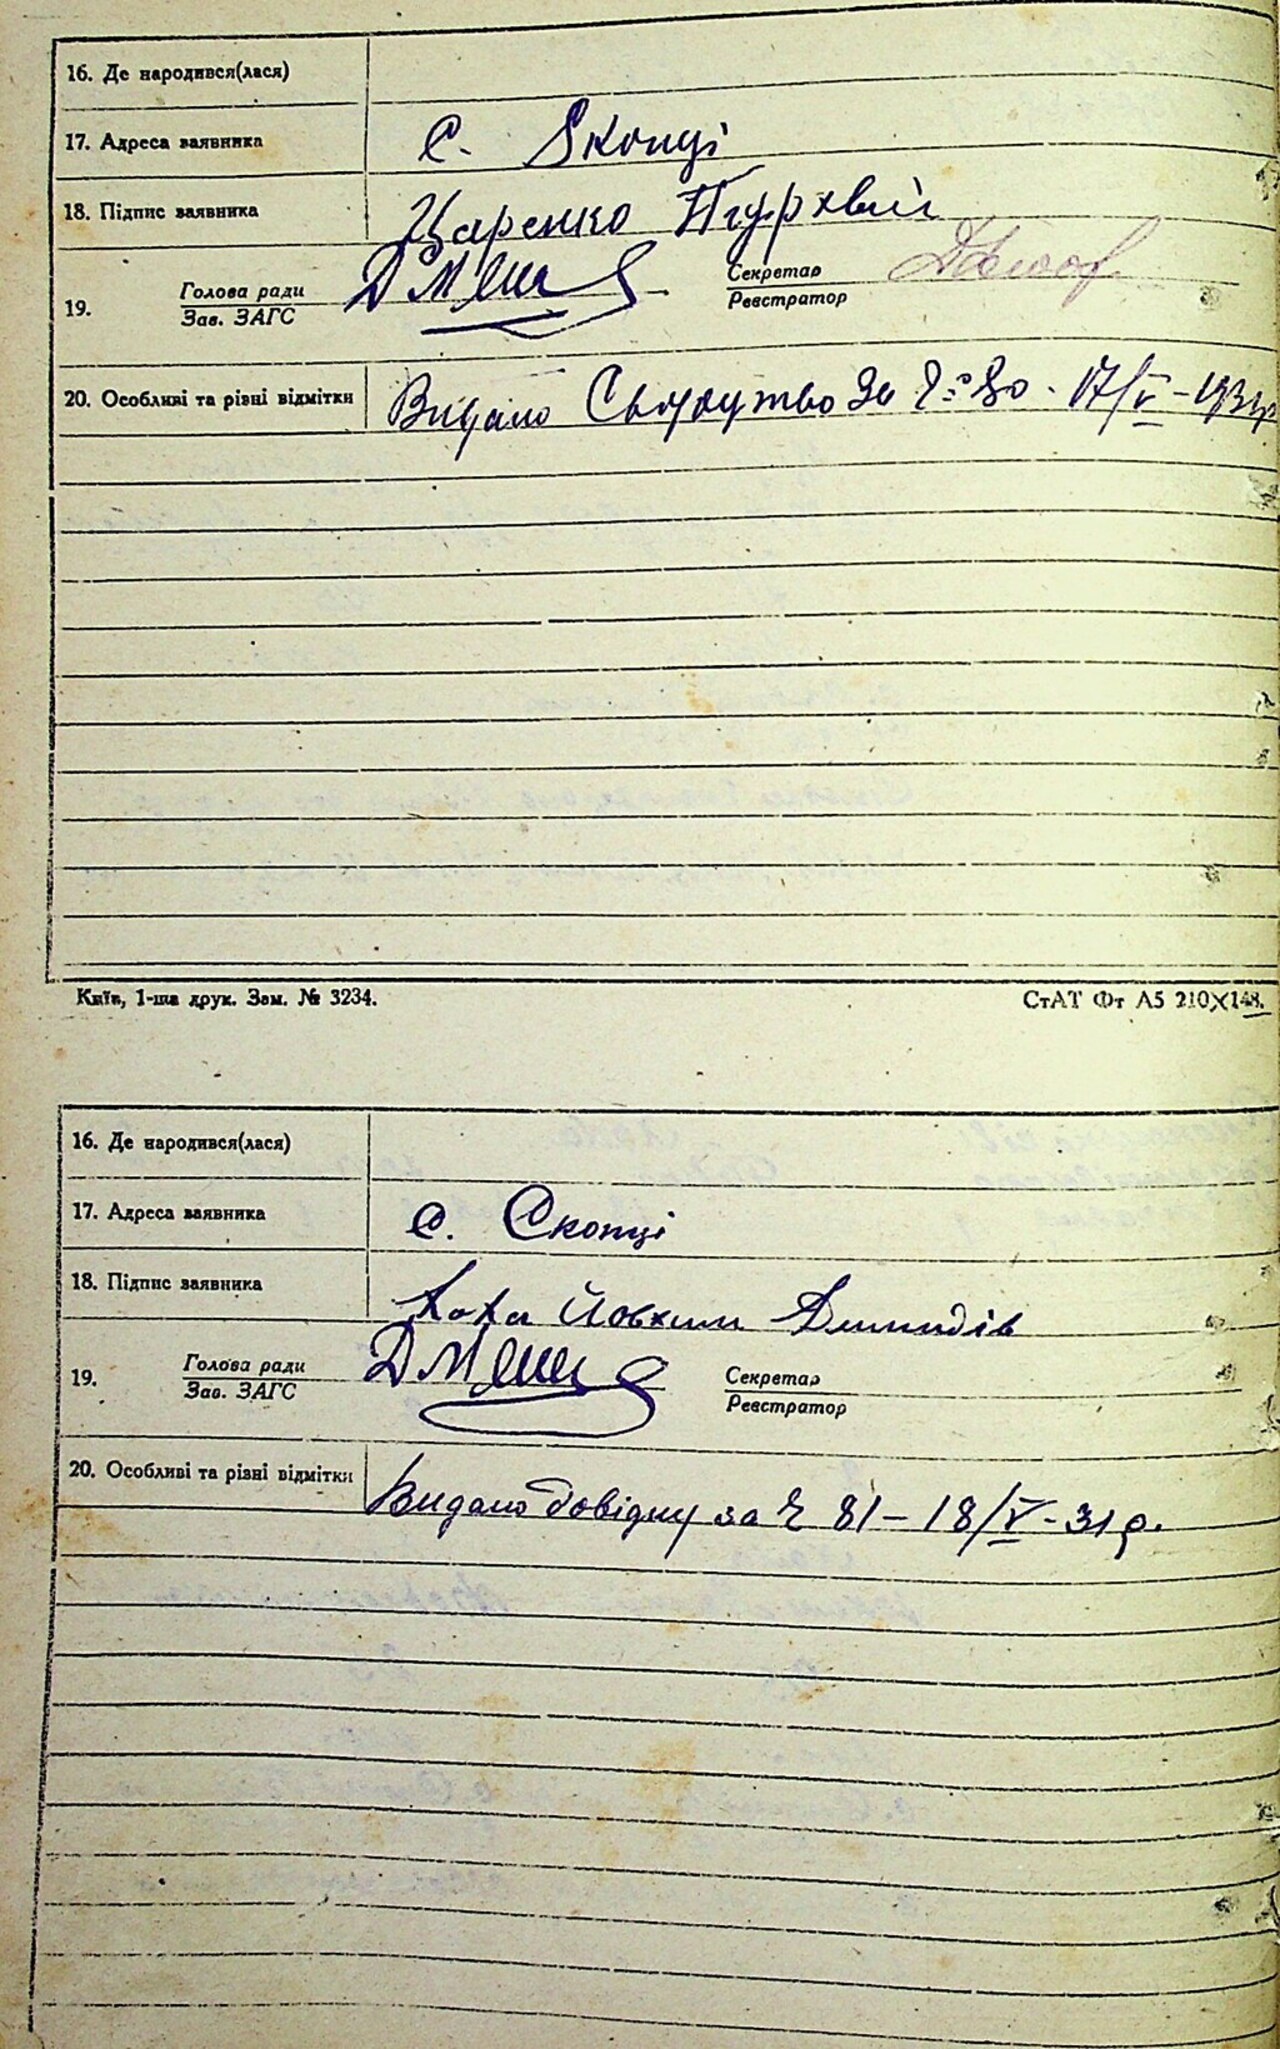 16. Де народився(лася)
17. Адреса заявника с. Скопці
18. Підпис заявника Царенко
19. Голова ради Секретар
Зав. ЗАГС Реєстратор
20. Особливі та різні відмітки Видано Свідоцтво За № 80 - 17/V - 1931р
Київ, 1-ша друк. Зам. № 3234. СтАТ Фт А5 210×148.
16. Де народився(лася)
17. Адреса заявника с. Скопці
18. Підпис заявника Йовхим Демидів
19. Голова ради Секретар
Зав. ЗАГС Реєстратор
20. Особливі та різні відмітки Видано довідку за № 81 - 18/V - 31 р.